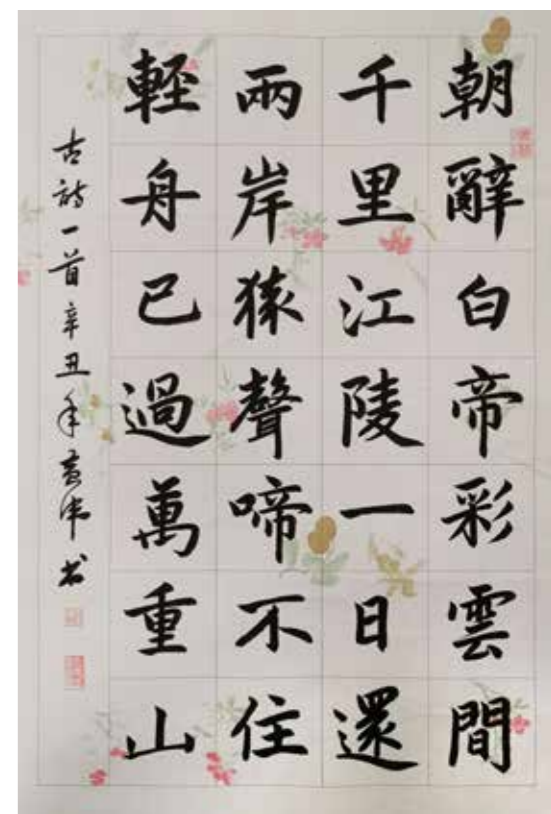 朝辭白帝彩雲間
千里江陵一日還
兩岸猿聲啼不住
輕舟已過萬重山
古詩一首辛丑年黃偉书